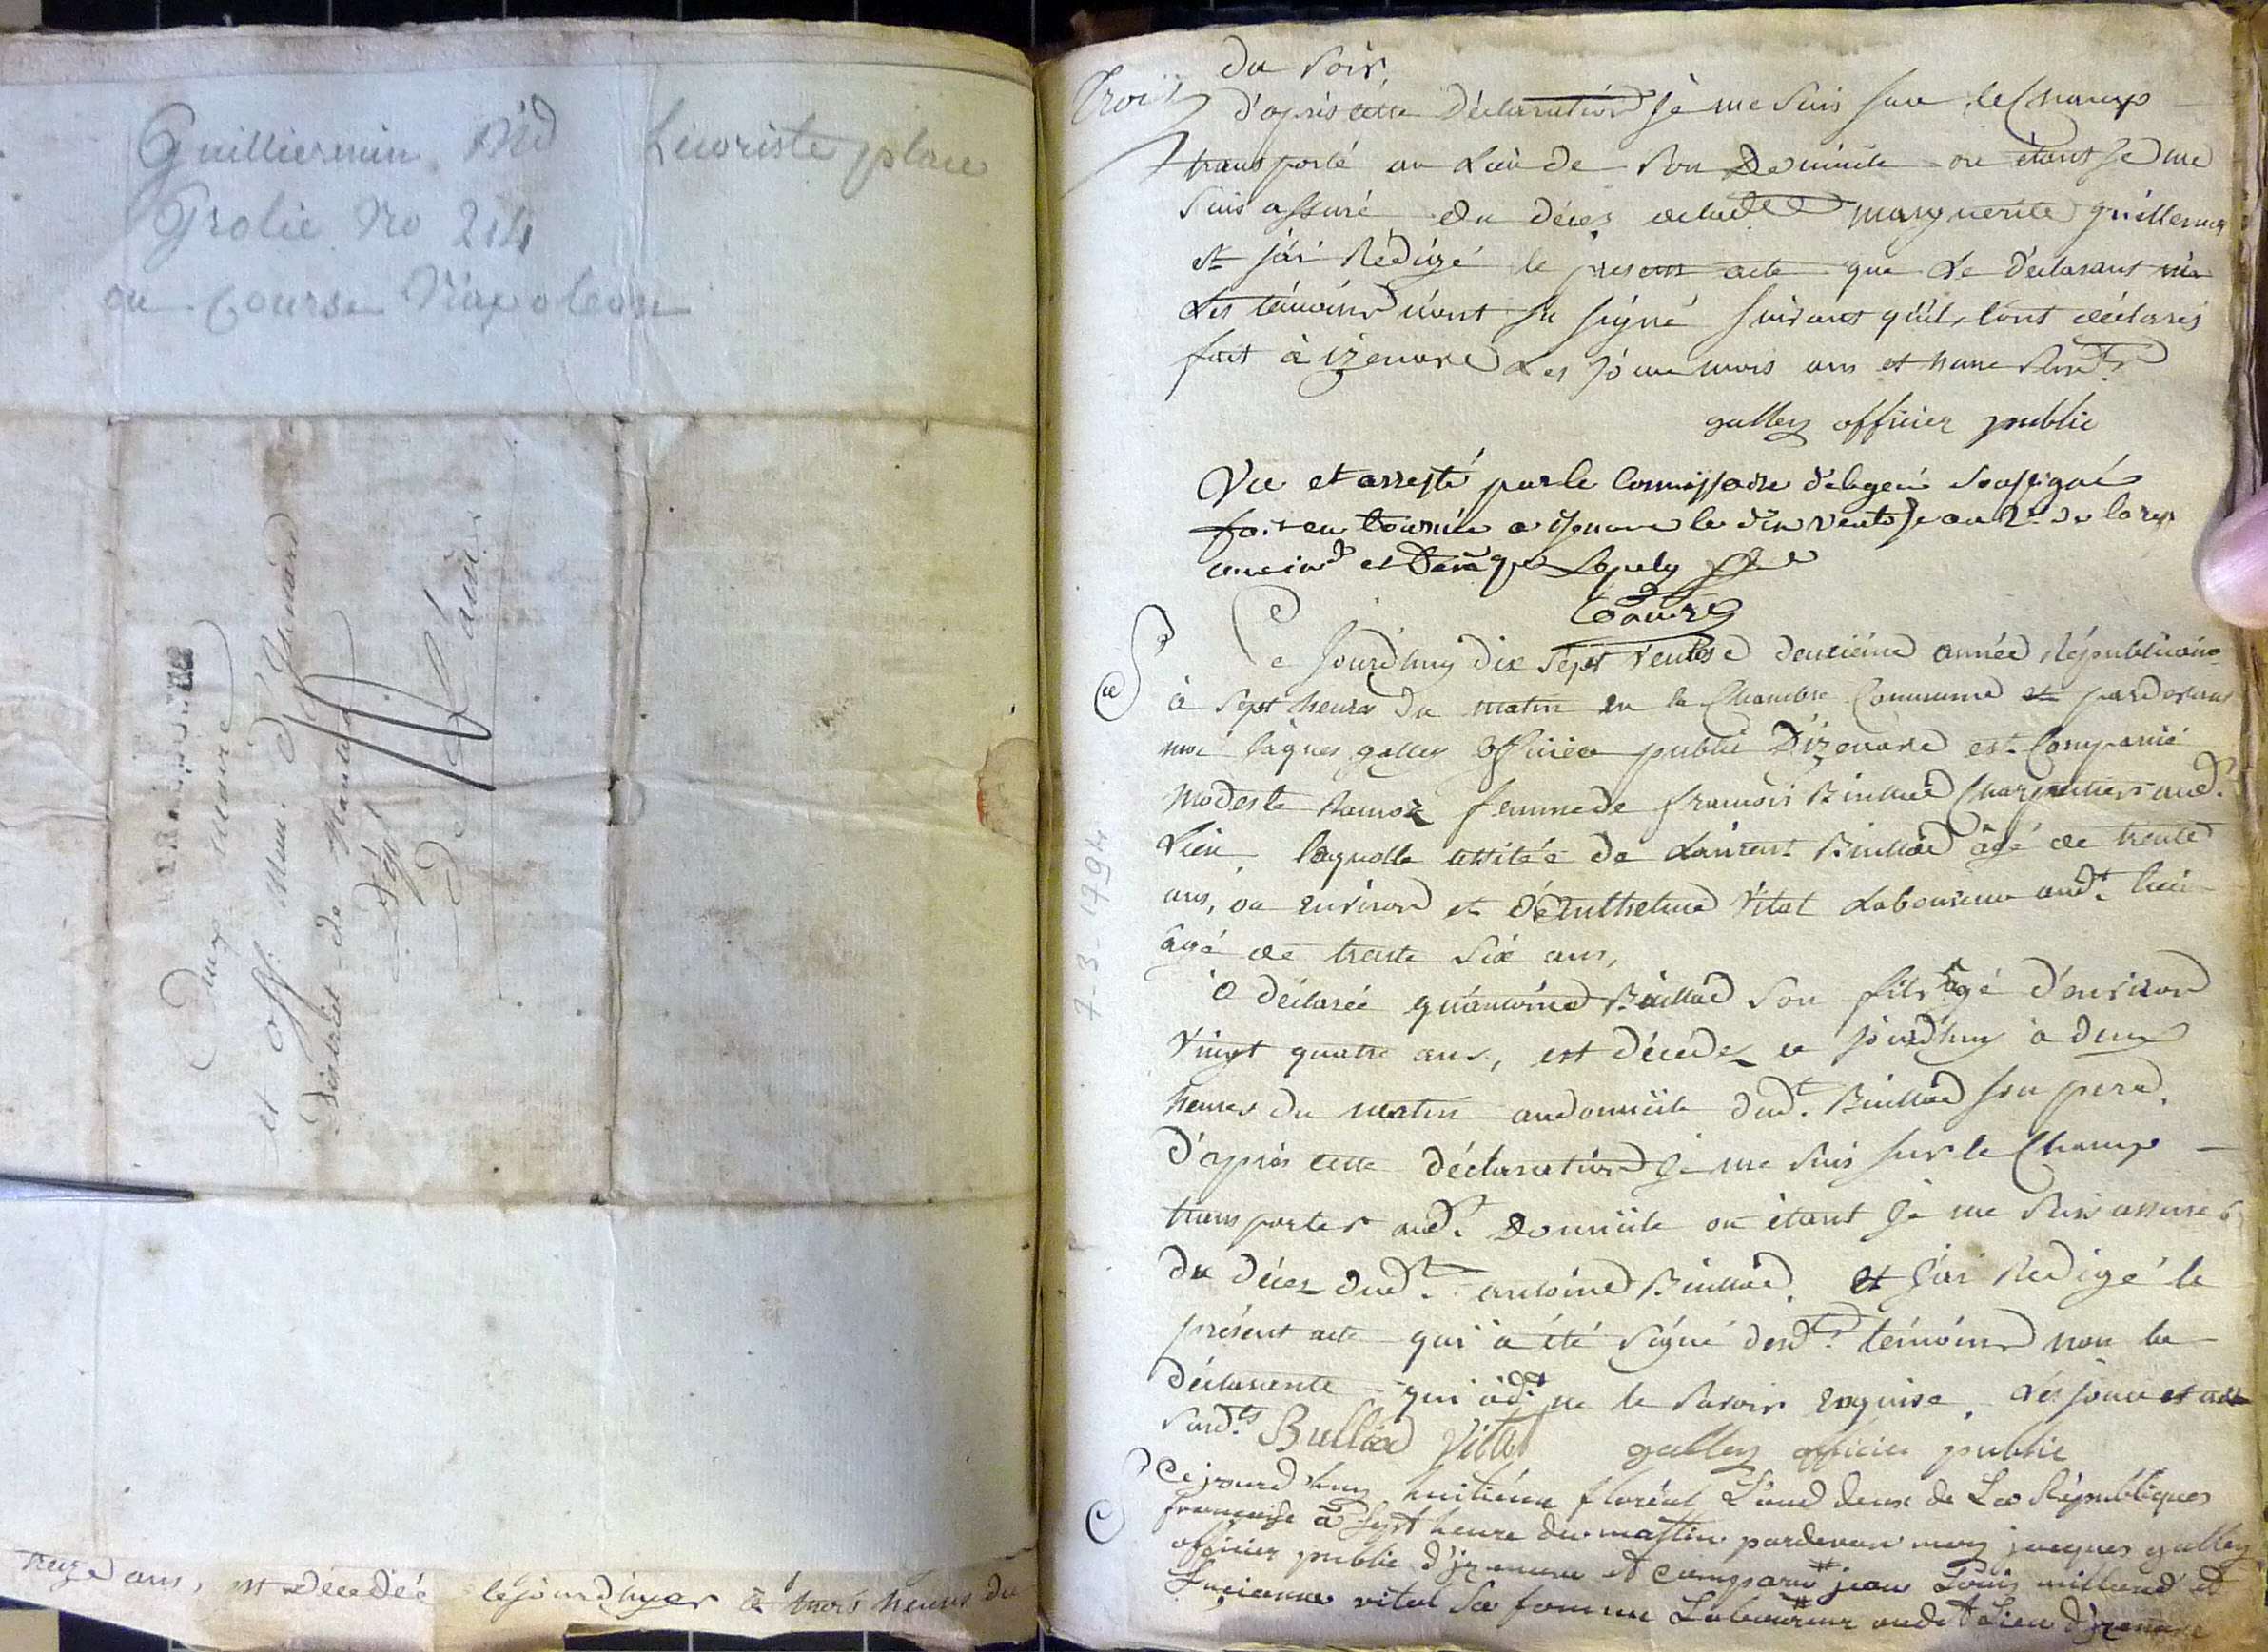 Guilliermin Md Licoriste place
Grolie No 214
ou Course Napoleon
maire
et off. mun. d'Isenard
District de Nantua
Dépt
De L'ain
treize ans, est décédéé le jourd'hyer à trois heures du
du soir,
Trois
d'après cette Déclaration je me suis sur le Champ
transporté au Lieu de son Domicile ou étant je me
suis assuré du décès marguerite guillermin
et j'ai Rédigé le present acte que le déclarant ni
Les témoins n'ont su signé suivant qu'il l'ont déclarés
fait à izenave Les jour mois ans et heure Susdts
galley officier public
Vu et arresté par le Commissaire délegué Soussigné
fait en tournée a isenave le dix ventose an 2e de la rep
une ind et
Ce jourd'huy dix sept ventose deuxiéme année Républicaine
à sept heures du matin en la Chambre Commune et pardevant
moi Jâques galley officier public D'izenave est Comparüe
modeste femme de françois Binllad Charpentier aud.
Lieu. laquelle assitée de Laurent Binllad âgé de trente
ans, ou environ et d'Enthelme Vital Laboureur audt. lieu
agé de trente six ans,
a déclarée qu'antoine Binllad son fils agé d'environ
vingt quatre ans, est décédéz ce jourd'huy à deux
heures du matin au domicile dudt. Binllad son pere.
D'après cette déclaration Je me suis sur le Champ
transporter audt. Domicile ou étant Je me suis assuré
du décez dudt. antoine Binllad. Et J'ai Redigé le
présent acte qui a été signé desdts. témoins non la
déclarente qui a dt. ne le savoir Enquise. Les jour et an
susdts Bullad Vittal galley officier public
Ce jourd'huy huitiéme floréal L'and deux de La Républiques
françaisse a sept heure du mastin pardevan moy jacques galley
officier public d'izenave et comparu # jean Louis milland et
Lucienne vital sa femme # Laboureur audt Lieu d'izenave
7-3-1794